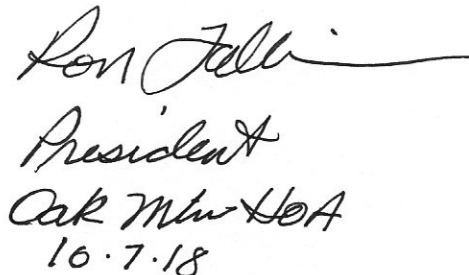 Ron
President
Oak Mtn HOA
10.7.18